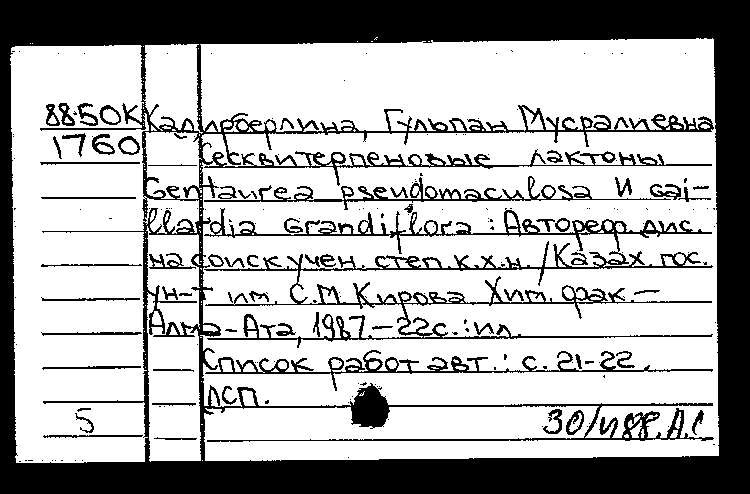 88-50К Кадирберлина, Гульпан Мусралиевна
1760 Сесквитерпеновые лактоны
Centaurea pseudomaculosa И Gai-
llardia Grandiflora : Автореф. дис.
на соиск. учен. степ. к.х.н. / Казах. гос.
ун-т им. С.М. Кирова. Хим. фак. —
Алма-Ата, 1987. — 22с. : ил.
Список работ авт. : с. 21-22.
ДСП.
5 30/VI 88. А.С.